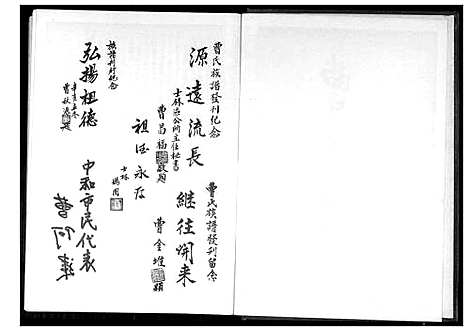 曹氏族譜發刊紀念
源遠流長
士林區公所主任秘書
曹昌福 敬題
曹氏族譜發刊留念
繼往開來
曹金堆 題
祖德永存
士林
族譜刊行紀念
弘揚祖德
曹秋
中和市民代表
曹阿